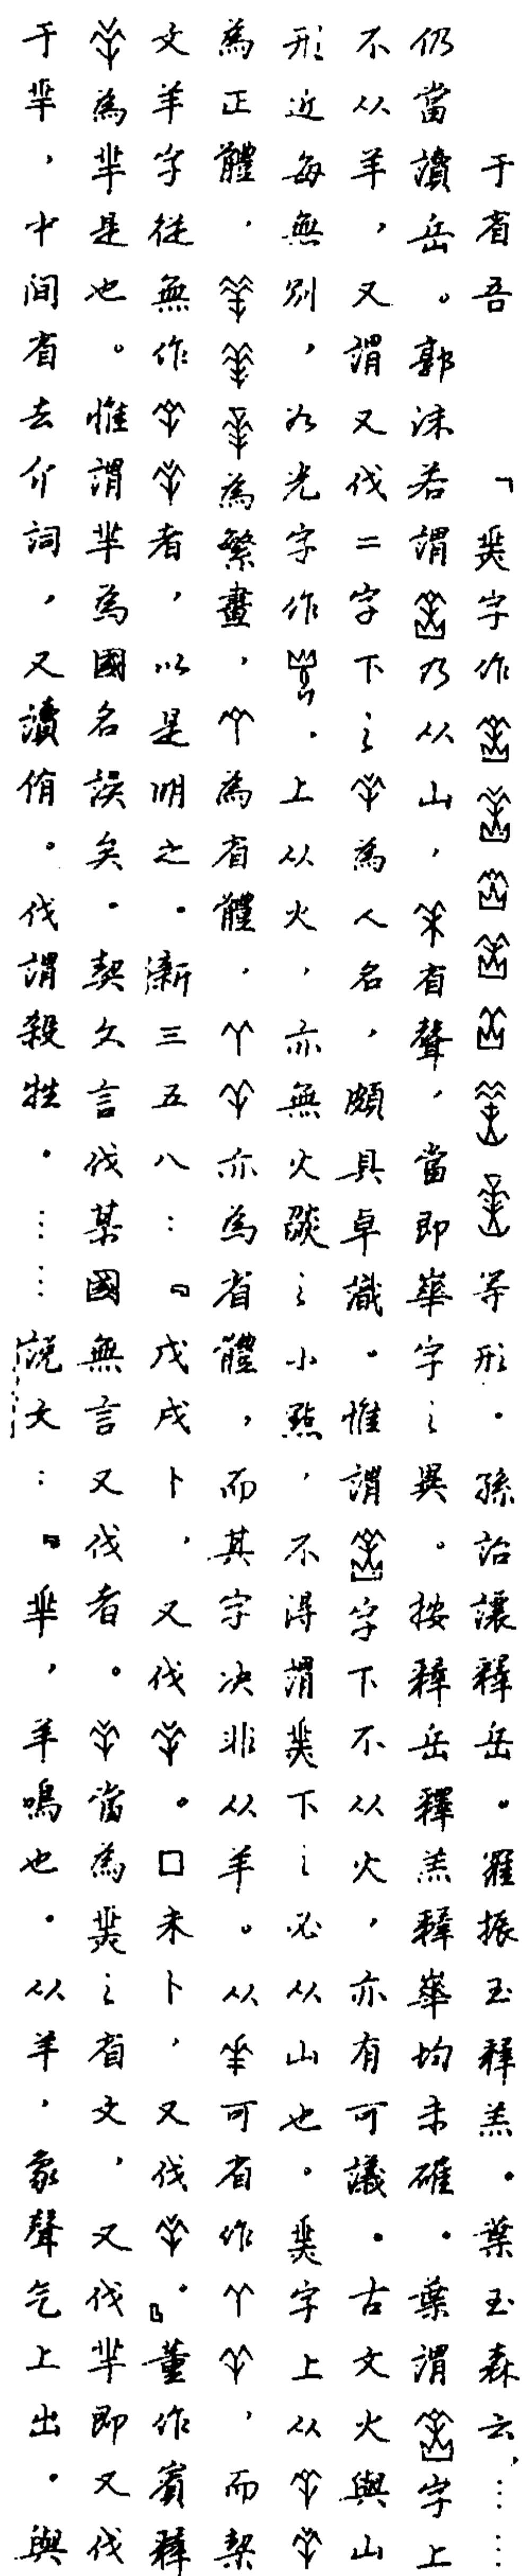 于省吾 「𦍎字作等形。孫詒讓釋岳。羅振玉釋羔。葉玉森云，……
仍當讀岳。郭沫若謂乃从山，有聲，當即崋字之異。按釋岳釋羔釋崋均未確。葉謂字上
不从羊，又謂又伐二字下之為人名，頗具卓識。惟謂字下不从火，亦有可議。古文火與山
形近每無別，如光字作。上从火，亦無火燄之小點，不得謂下之必从山也。字上从
為正體，為繁畫，為省體，亦為省體，而其字决非从羊。从可省作，而契
文羊字從無作者，以是明之。新三五八：『戊戌卜，又伐。□未卜，又伐。』董作賓釋
為羋是也。惟謂羋為國名誤矣。契文言伐某國無言又伐者。當為之省文，又伐羋即又伐
于羋，中間省去介詞，又讀侑。伐謂殺牲。……說文：『羋，羊鳴也。从羊，象聲气上出。與